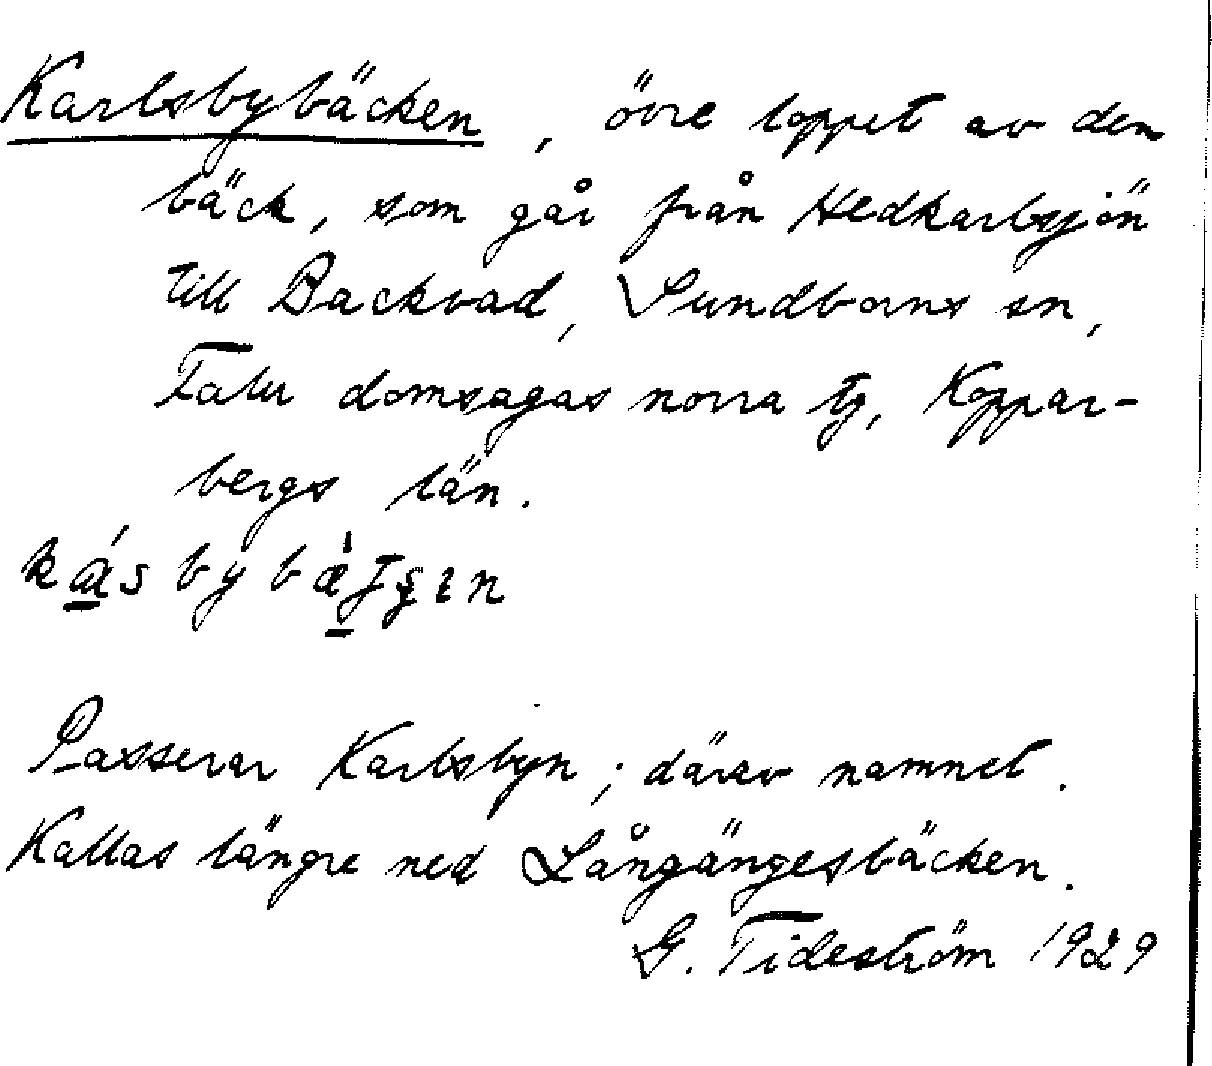 Karlsbybäcken, övre loppet av den
bäck, som går från Hedkarlssjön
till Backvad, Sundborns sn,
Falu domsagas norra tg, Koppar-
bergs län.
Passerar Karlsbyn; därav namnet.
Kallas längre ned Långängesbäcken.
G. Tideström 1929